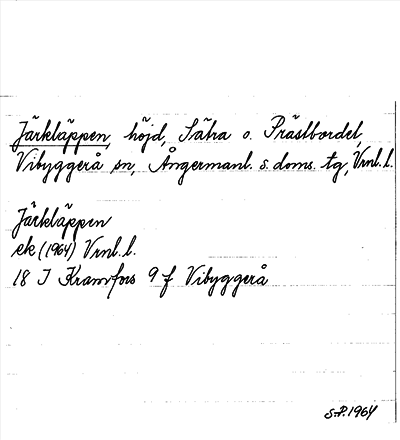 Järkläppen, höjd, Säha o. Prästbordet,
Vibyggerå sn, Ångermanl. s. doms. tg, Vrnl. l.
Järkläppen
ek (1964) Vrnl. l.
18 I Kramfors 9 f Vibyggerå
S.P. 1964